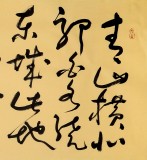 青山横北
郭白水绕
东城此地